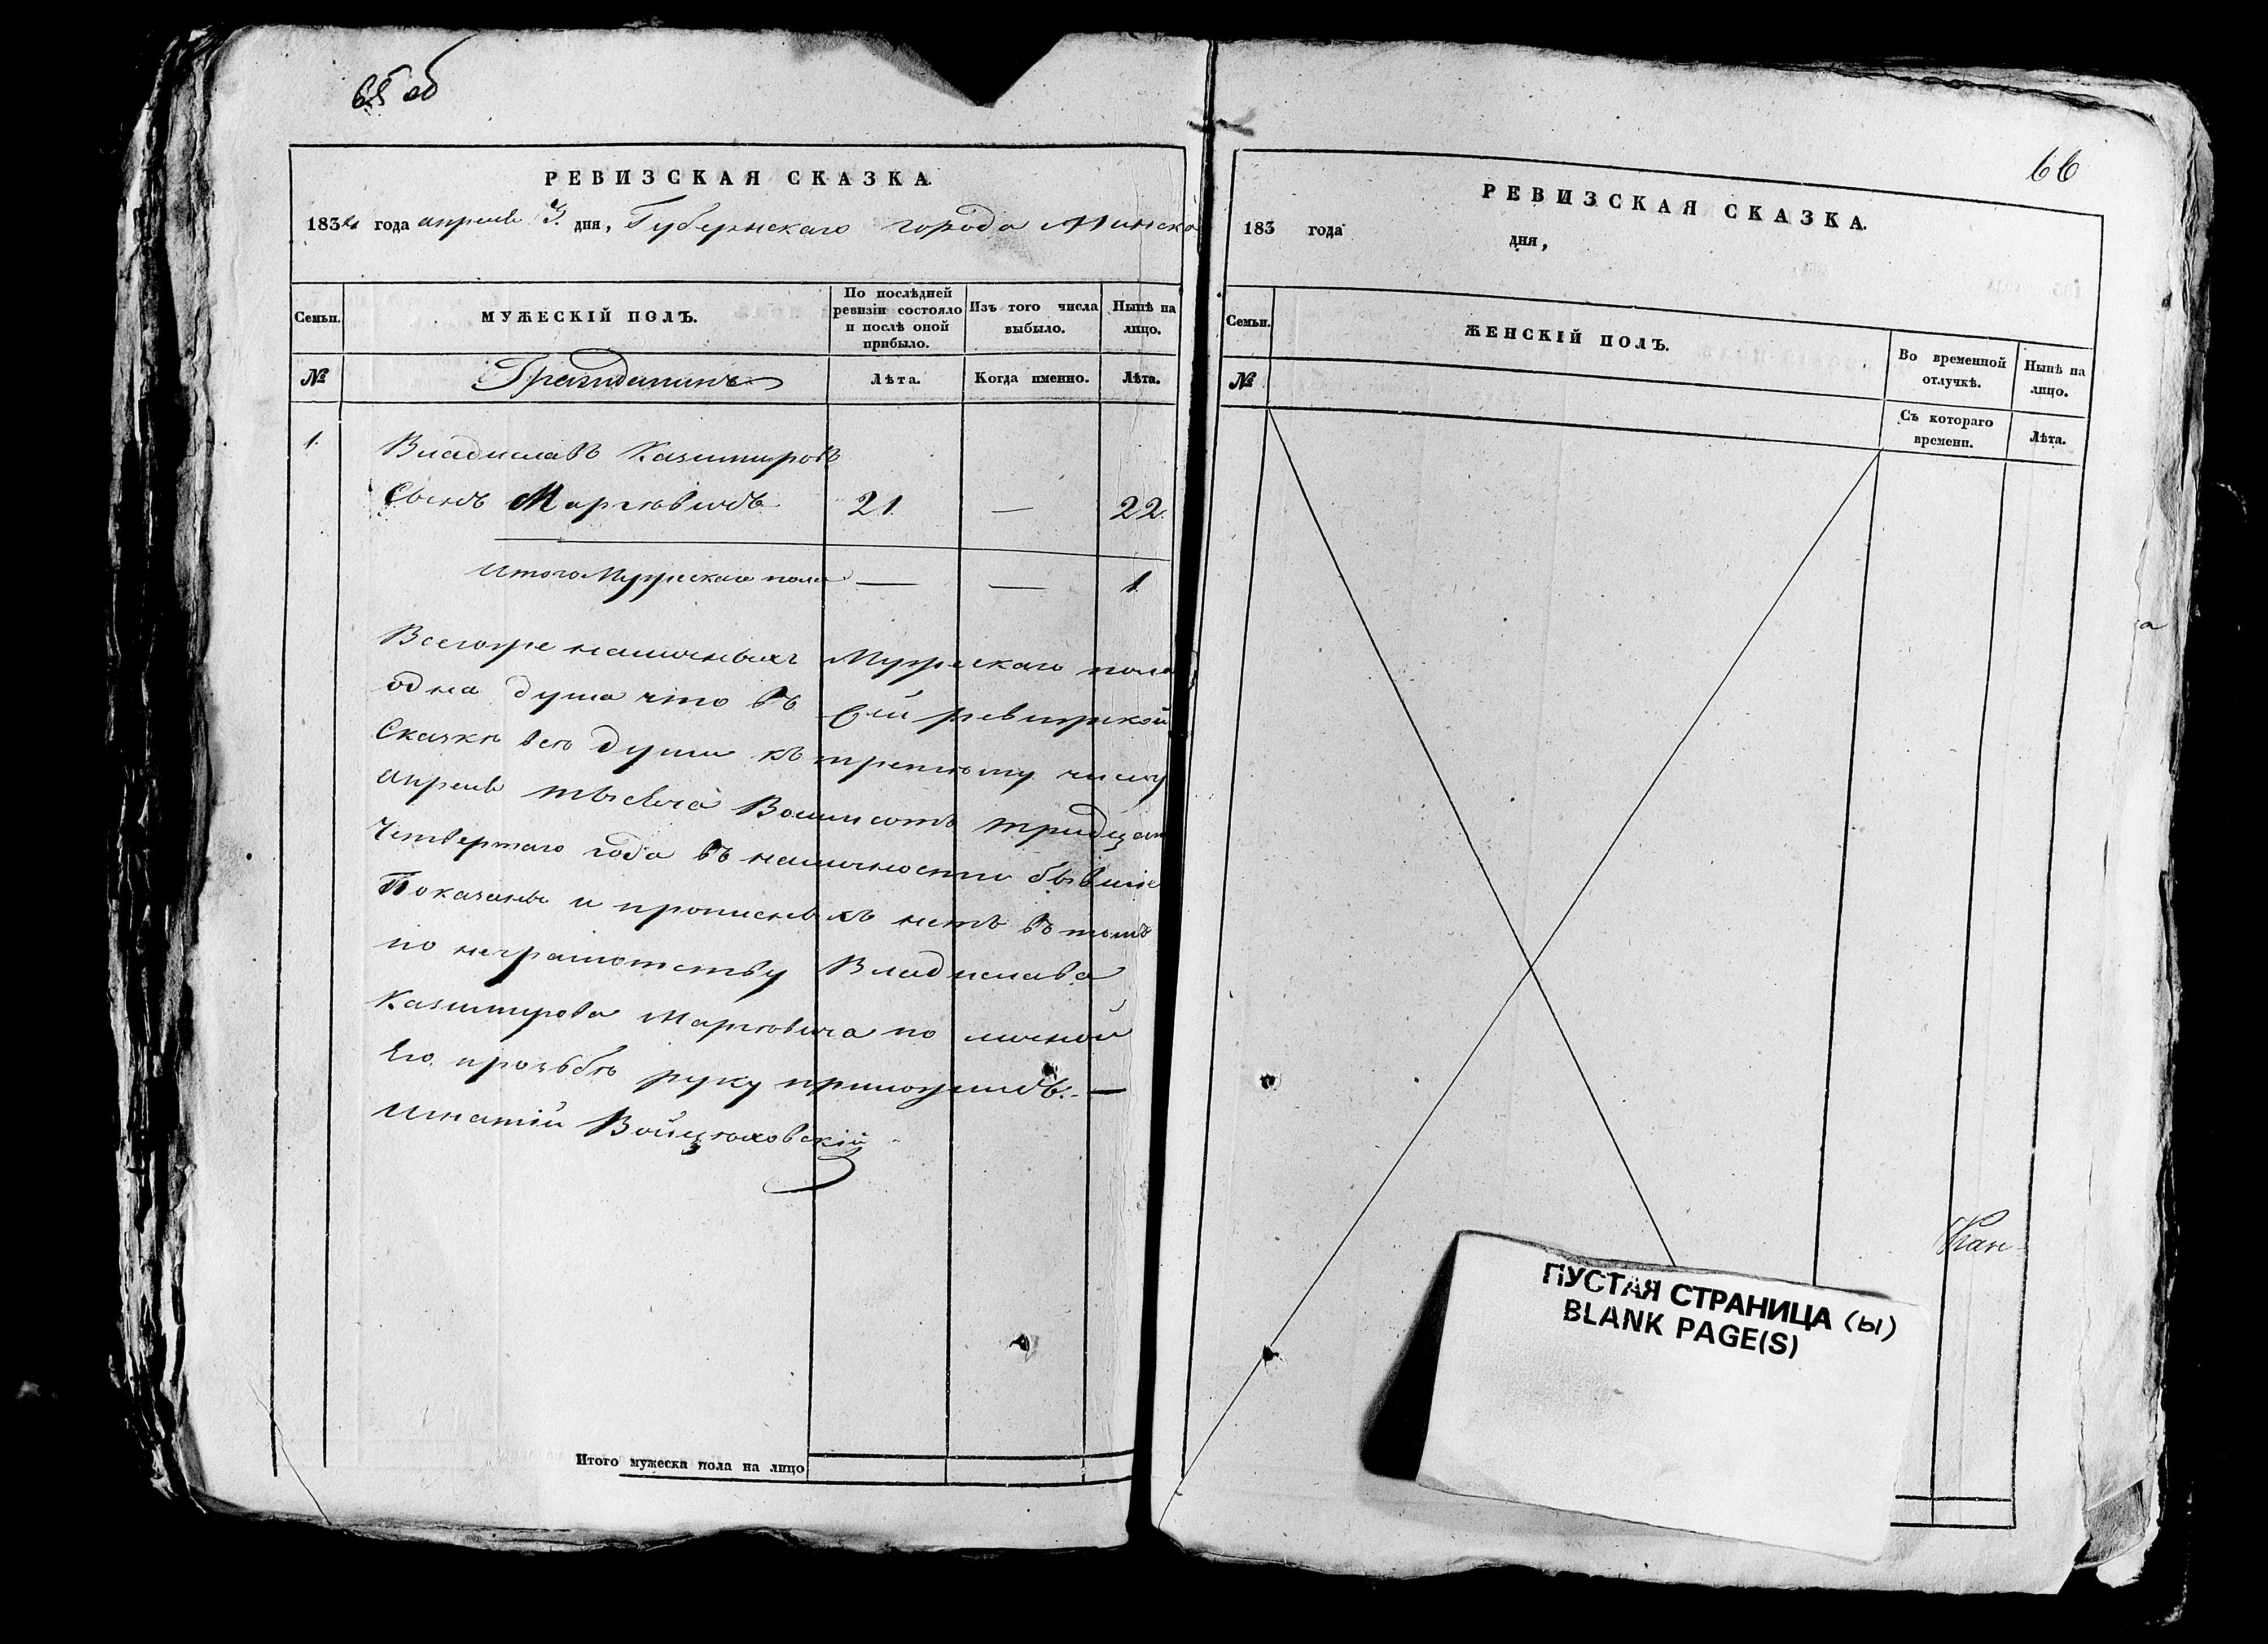 65 об
РЕВИЗСКАЯ СКАЗКА.
1834 года апреля 3. дня, Губернскаго города Минска
Семьи.
МУЖЕСКІЙ ПОЛЪ.
По послѣдней ревизіи состояло и послѣ оной прибыло.
Изъ того числа выбыло.
Нынѣ на лицо.
№
Гражданинъ
Лѣта.
Когда именно.
Лѣта.
1.
Владиславъ Казимировъ
Сынъ Марковичъ 21. — 22.
Итого Мужескаго пола — — 1
Всегоже наличныхъ Мужескаго пола
одна душа что въ сей ревизской
Сказкѣ всѣ души къ третьему числу
апреля тысеча Восимсотъ тридцать
Четвертаго года въ наличности бывшіе
Показаны и прописныхъ нетъ въ томъ
по неграмотству Владислава
Казимирова Марковича по личной
Его прозьбѣ руку приложилъ. —
Игнатій
Итого мужеска пола на лицо
66
РЕВИЗСКАЯ СКАЗКА.
183 года дня,
Семьи.
ЖЕНСКІЙ ПОЛЪ.
Во временной отлучкѣ.
Нынѣ на лицо.
№
Съ котораго времени.
Лѣта.
ПУСТАЯ СТРАНИЦА (Ы)
BLANK PAGE(S)